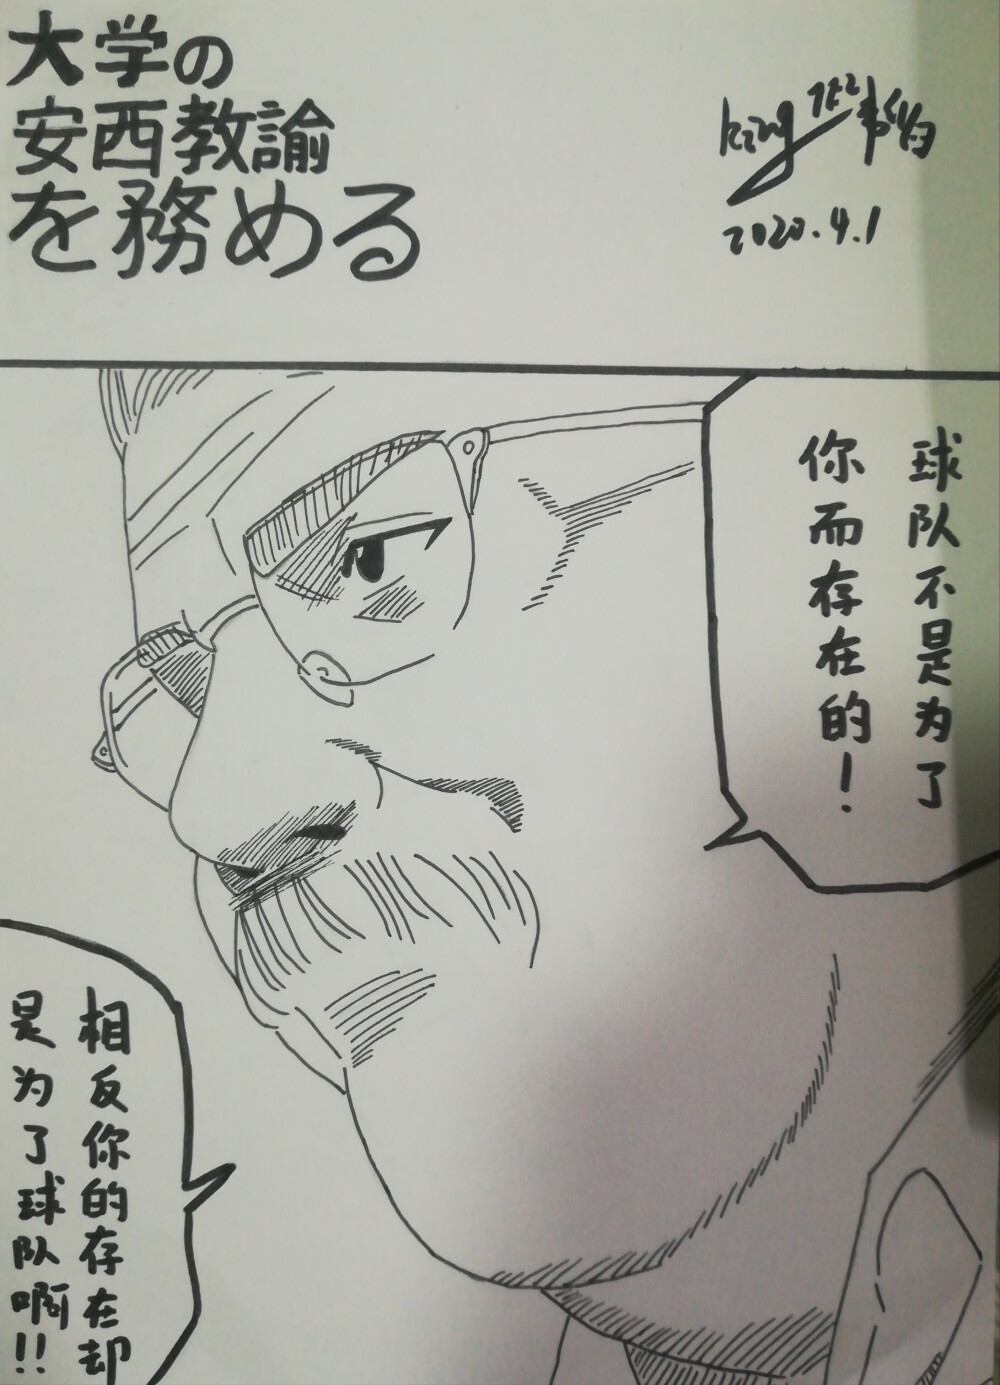 大学の
安西教諭
を務める
King
2020.4.1
球队不是为了
你而存在的！
相反你的存在却
是为了球队啊!!